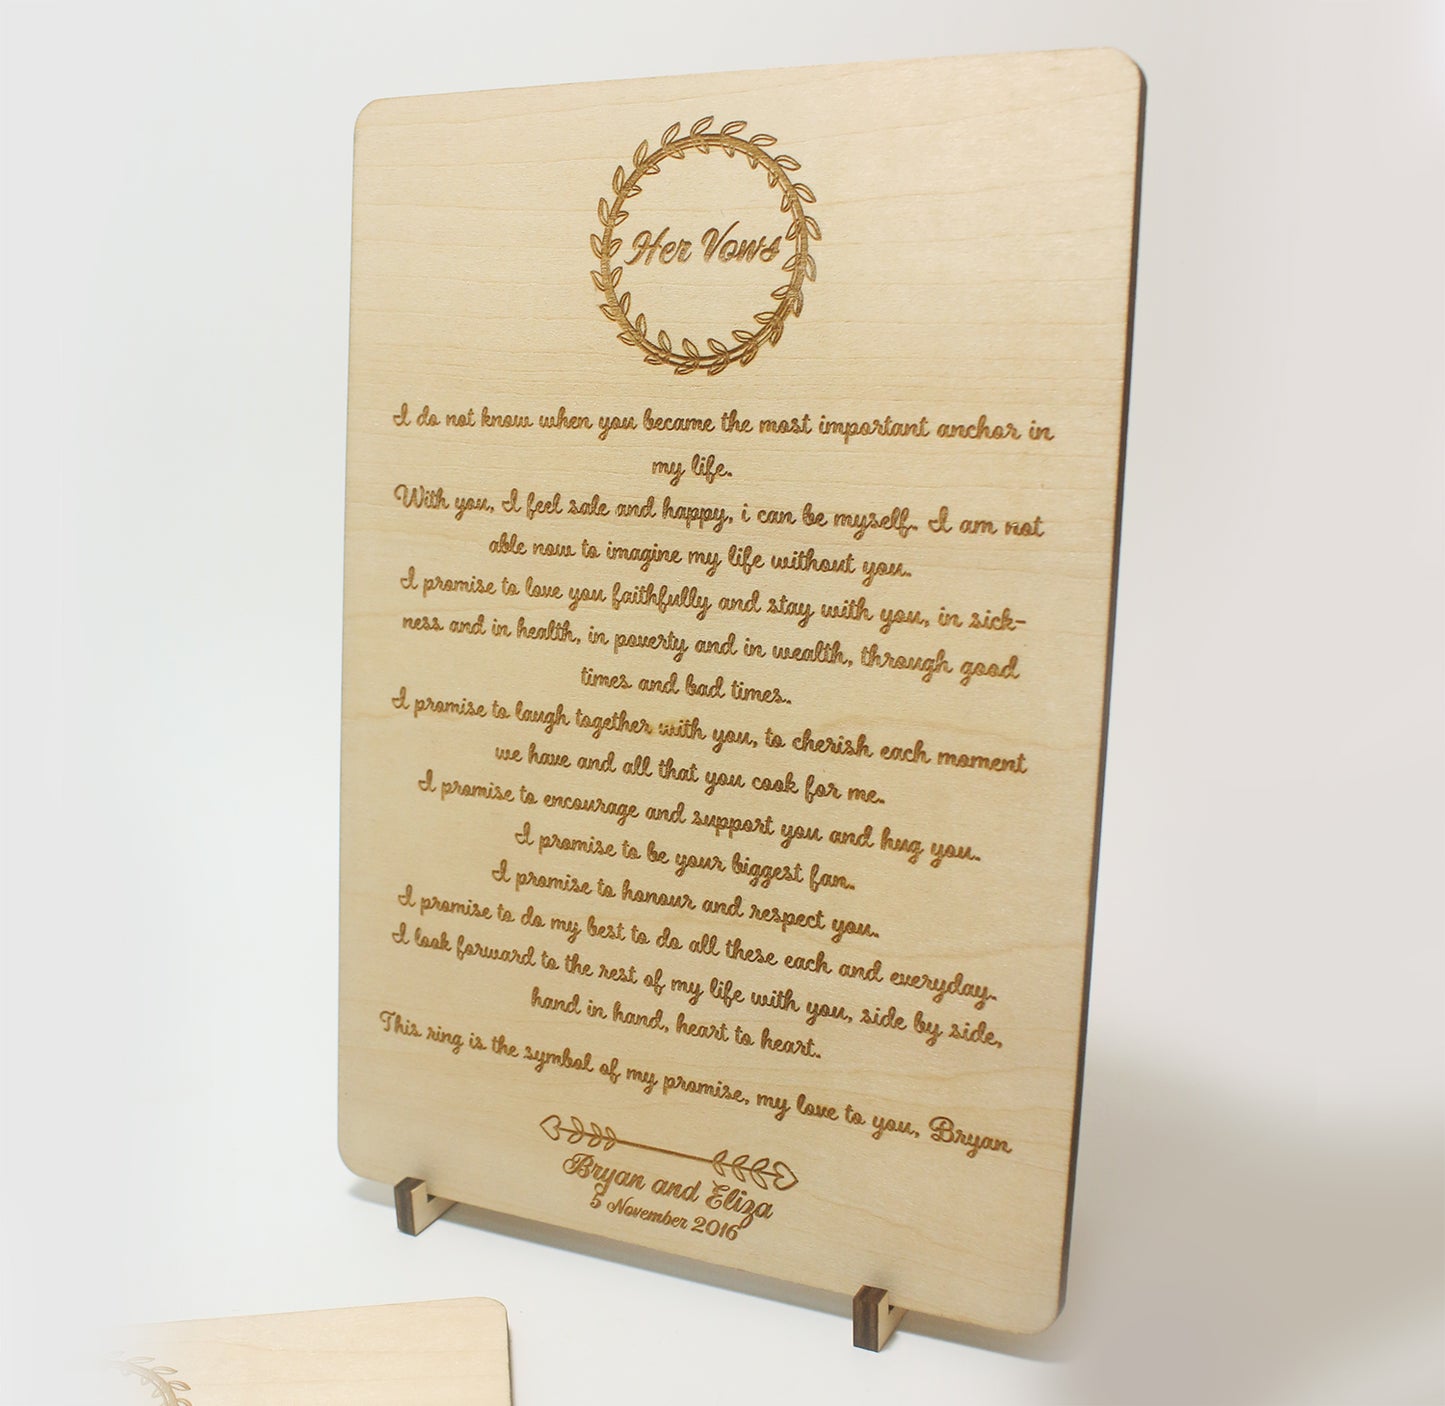 Her Vows
I do not know when you became the most important anchor in
my life.
With you, I feel sale and happy, i can be myself. I am not
able now to imagine my life without you.
I promise to love you faithfully and stay with you, in sick-
ness and in health, in poverty and in wealth, through good
times and bad times.
I promise to laugh together with you, to cherish each moment
we have and all that you cook for me.
I promise to encourage and support you and hug you.
I promise to be your biggest fan.
I promise to honour and respect you.
I promise to do my best to do all these each and everyday.
I look forward to the rest of my life with you, side by side,
hand in hand, heart to heart.
This ring is the symbol of my promise, my love to you, Bryan
Bryan and Eliza
5 November 2016